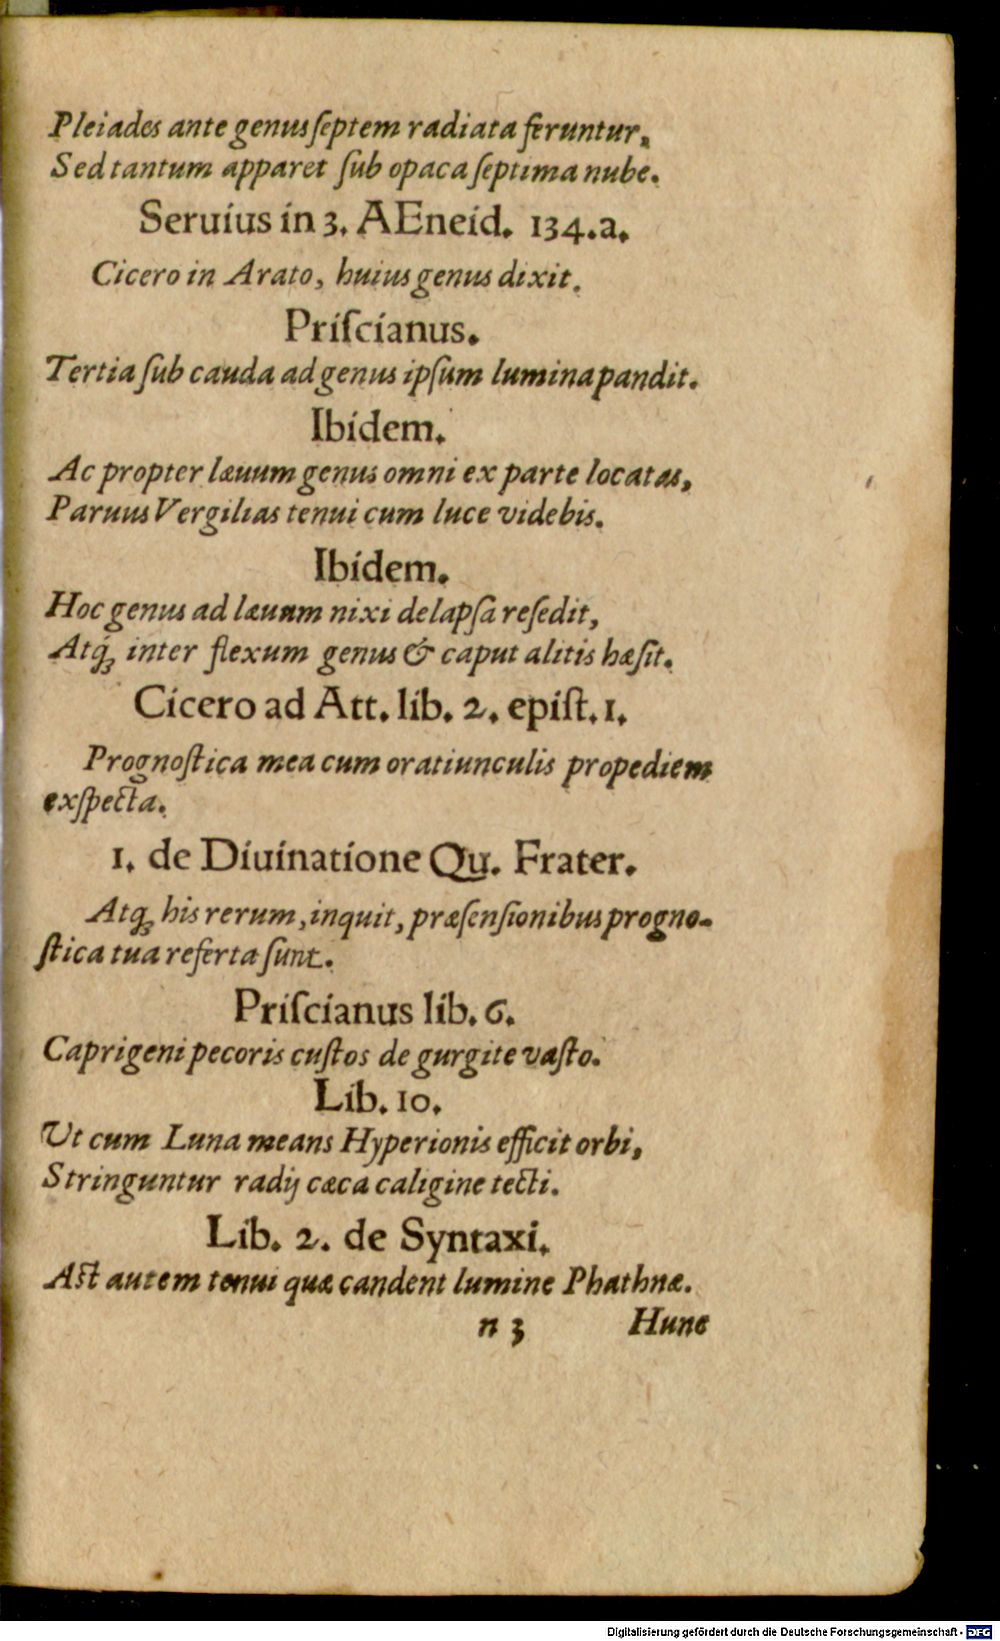 Pleiades ante genus ſeptem radiata feruntur,
Sed tantum apparet ſub opaca ſeptima nube.
Seruius in 3. AEneid. 134.a.
Cicero in Arato, huius genus dixit.
Priſcianus.
Tertia ſub cauda ad genus ipſum lumina pandit.
Ibidem.
Ac propter læuum genus omni ex parte locatas,
Paruus Vergilias tenui cum luce videbis.
Ibidem.
Hoc genus ad læuum nixi delapſa reſedit,
Atq́ꝫ inter flexum genus & caput alitis hæſit.
Cicero ad Att. lib. 2. epiſt. 1.
Prognoſtica mea cum oratiunculis propediem
exſpecta.
1. de Diuinatione Qu. Frater.
Atqꝫ his rerum, inquit, præſenſionibus progno-
ſtica tua referta ſunt.
Priſcianus lib. 6.
Caprigeni pecoris cuſtos de gurgite vaſto.
Lib. 10.
Ut cum Luna means Hyperionis efficit orbi,
Stringuntur radij cæca caligine tecti.
Lib. 2. de Syntaxi.
Aſt autem tenui quæ candent lumine Phathnæ.
n 3 Hunc
Digitalisierung gefördert durch die Deutsche Forschungsgemeinschaft - DFG